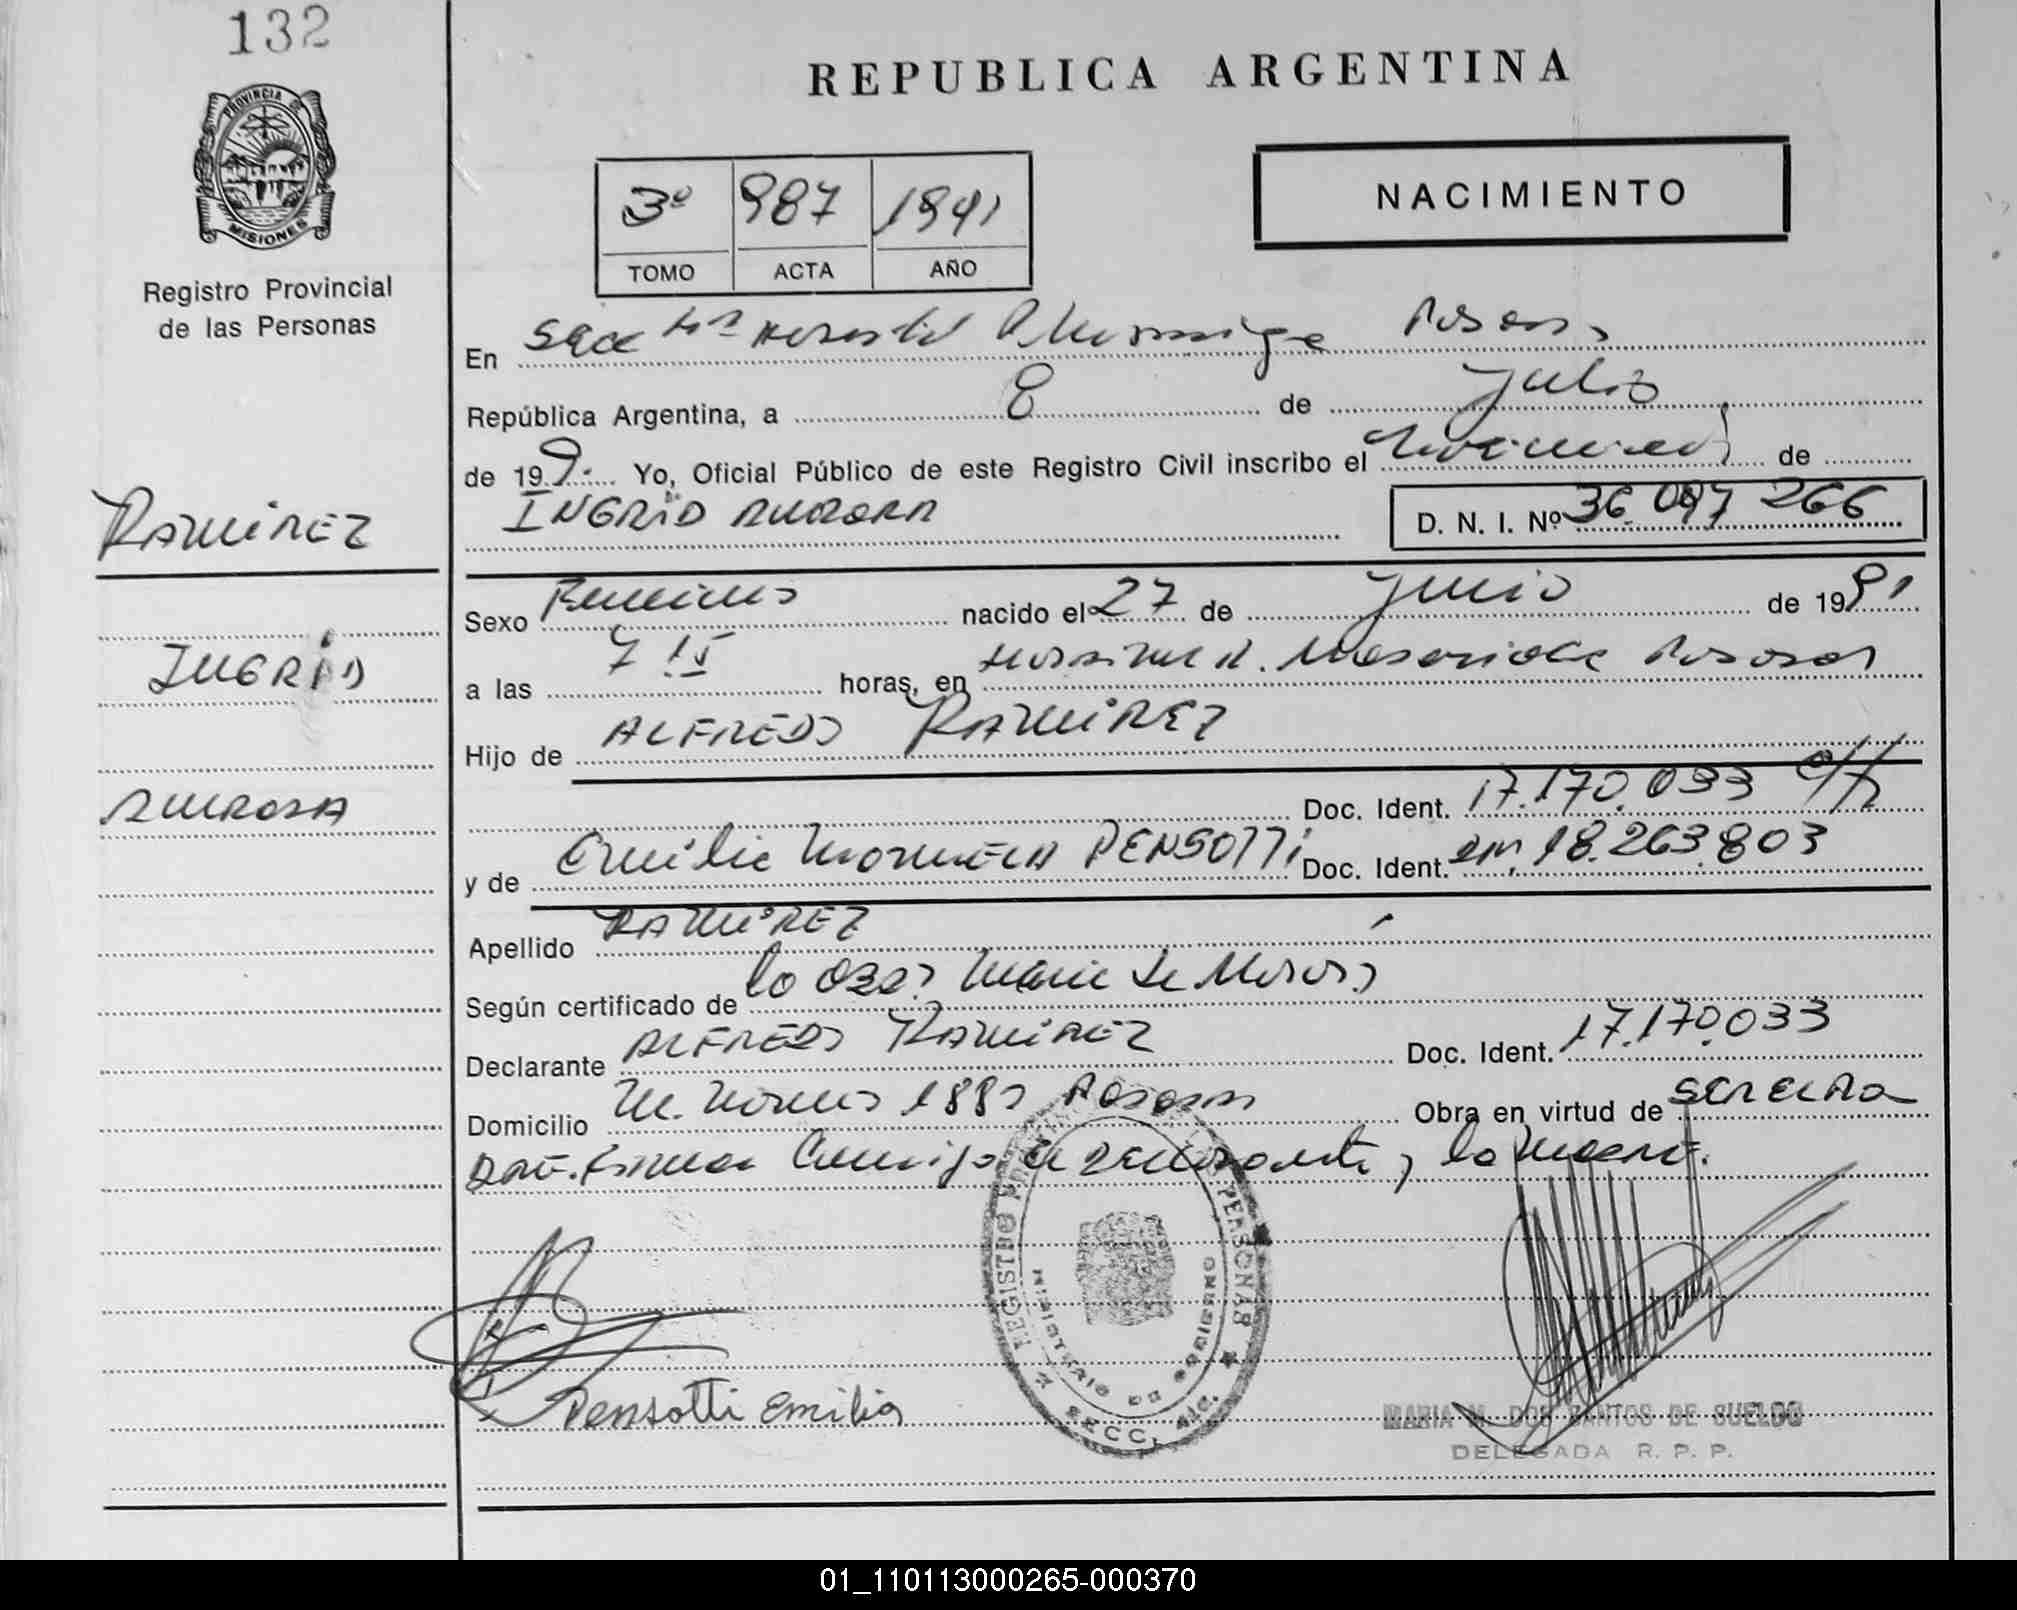 132
REPUBLICA ARGENTINA
PROVINCIA DE
MISIONES
Registro Provincial
de las Personas
3º 987 1991
TOMO ACTA AÑO
NACIMIENTO
En Posadas
República Argentina, a 8 de Julio
de 199 Yo, Oficial Público de este Registro Civil inscribo el nacimiento de
INGRID AURORA
D. N. I. Nº 36.097 266
RAMIREZ
INGRID
AURORA
Sexo Femenino nacido el 27 de Junio de 1991
a las 7 15 horas, en Posadas
Hijo de ALFREDO RAMIREZ
Doc. Ident. 17.170.033
y de Emilia PENSOTTI Doc. Ident. 18.263.803
Apellido RAMIREZ
Según certificado de la
Declarante ALFREDO RAMIREZ Doc. Ident. 17.170.033
Domicilio Posadas Obra en virtud de
Firman Conmigo el declarante y la madre.
REGISTRO PERSONAS
MINISTERIO DE GOBIERNO
SECC. 4ta.
Pensotti Emilia
MARIA M. DOS SANTOS DE SUELDO
DELEGADA R. P. P.
01_110113000265-000370